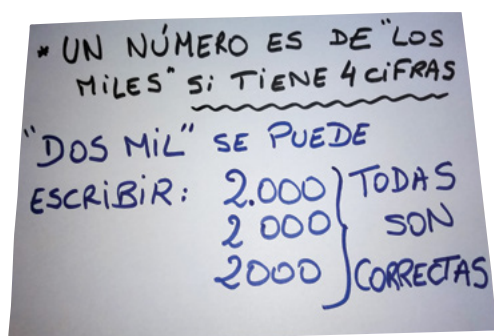 * UN NÚMERO ES DE "LOS
MiLES" Si TiENE 4 CiFRAS
"DOS MiL" SE PUEDE
ESCRiBiR: 2.000 } TODAS
2 000 SON
2000 CORRECTAS